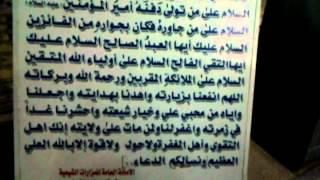 السلام على من تولى دفنه أمير المؤمنين
السلام على من جاوره فكان بجواره من الفائزين
السلام عليك أيها العبد الصالح السلام عليك
أيها التقي الفالح السلام على أولياء الله المتقين
السلام على الملائكة المقربين ورحمة الله وبركاته
اللهم انفعنا بزيارته واهدنا بهدايته واجعلنا
وإياه من محبي علي وخيار شيعته واحشرنا غداً
في زمرته واغفرلنا ولمن مات على ولايته إنك أهل
التقوى وأهل المغفرة ولاحول ولاقوة إلا بالله العلي
العظيم ونسالكم الدعاء
الأمانة العامة للمزارات الشيعية